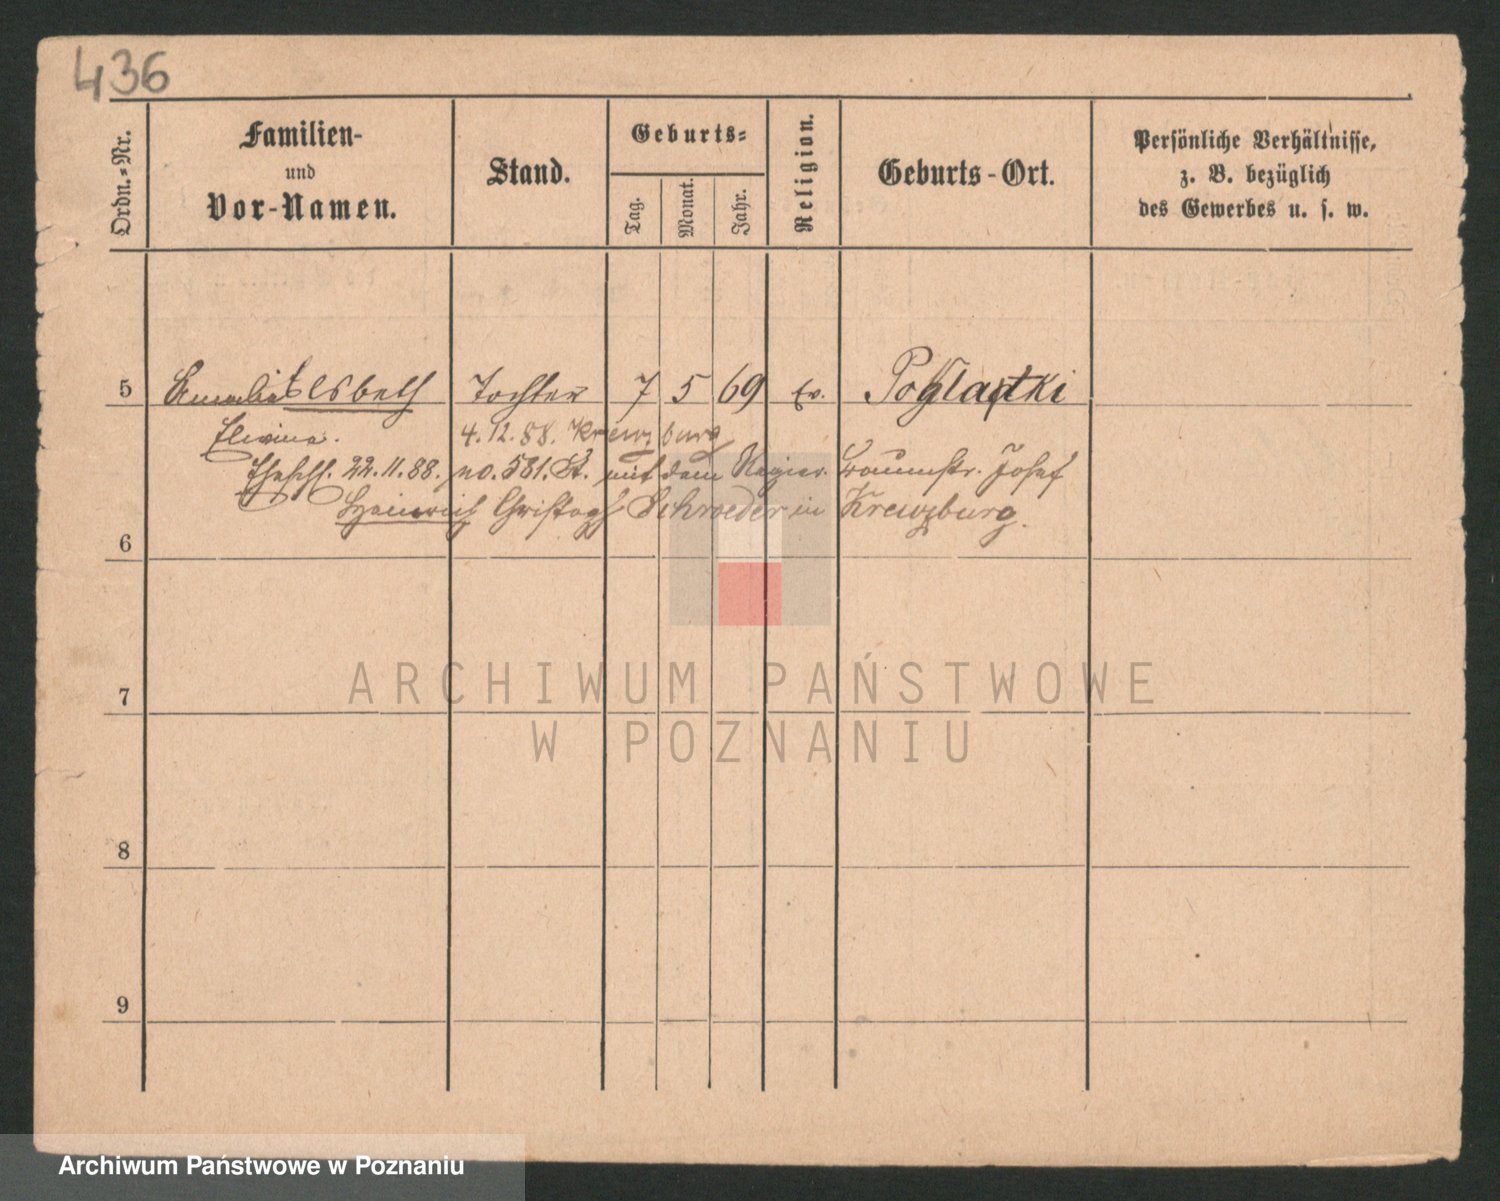 436
Ordn.-Nr.
Familien-
und
Vor-Namen.
Stand.
Geburts-
Tag.
Monat.
Jahr.
Religion.
Geburts-Ort.
Persönliche Verhältnisse,
z. B. bezüglich
des Gewerbes u. s. w.
5 Amalie Elsbeth Tochter 7 5 69 Ev.
Elwine. 4.12.88. Kreuzburg
22.11.88. no. 581. St. mit dem Regier. Baumstr. Josef
Heinrich Christoph Schroeder in Kreuzburg.
6
7
8
9
ARCHIWUM PAŃSTWOWE
W POZNANIU
Archiwum Państwowe w Poznaniu